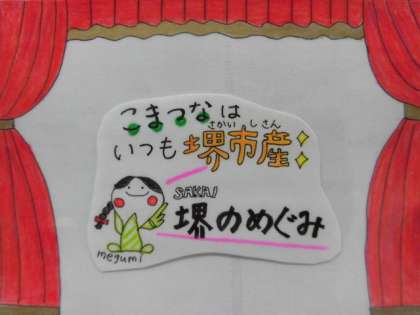 こまつなは
さかい しさん
いつも堺市産
SAKAI
堺のめぐみ
megumi